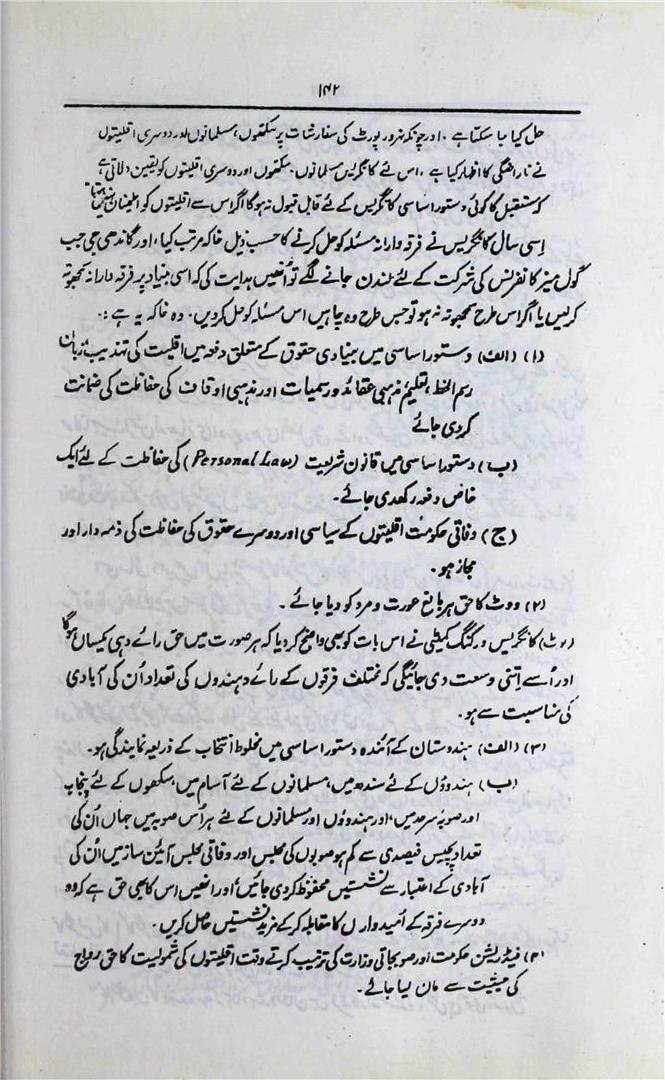 ۱۴۲
حل کیا جا سکتا ہے ۔ اور چونکہ نہرو رپورٹ کی سفارشات پر سکھوں، مسلمانوں اور دوسری اقلیتوں
نے ناراضگی کا اظہار کیا ہے ، اس لئے کانگریس مسلمانوں، سکھوں اور دوسری اقلیتوں کو یقین دلاتی ہے
کہ مستقبل کا کوئی دستور اساسی کانگریس کے لئے قابل قبول نہ ہوگا اگر اس سے اقلیتوں کو اطمینان نہیں ہوتا
اسی سال کانگریس نے فرقہ وارانہ مسئلہ کو حل کرنے کا حسب ذیل خاکہ مرتب کیا ، اور گاندھی جی جب
گول میز کانفرنس کی شرکت کے لئے لندن جانے لگے تو اُنھیں ہدایت کی کہ اسی بنیاد پر فرقہ دارانہ سمجھوتہ
کرلیں یا اگر اس طرح سمجھوتہ نہ ہو تو جس طرح وہ چاہیں اس مسئلہ کو حل کردیں ۔ وہ خاکہ یہ ہے :۔
(۱) (الف) دستور اساسی میں بنیادی حقوق کے متعلق دفعہ میں اقلیت کی تہذیب، زبان
رسم الخط، تعلیم، مذہبی عقائد ورسمیات اور مذہبی اوقاف کی حفاظت کی ضمانت
کردی جائے
(ب) دستور اساسی میں قانون شریعت (Personal Law) کی حفاظت کے لئے ایک
خاص دفعہ رکھدی جائے ۔
(ج) وفاقی حکومت اقلیتوں کے سیاسی اور دوسرے حقوق کی حفاظت کی ذمہ دار اور
مجاز ہو ۔
(۲) ووٹ کا حق ہر بالغ عورت و مرد کو دیا جائے ۔
(نوٹ) کانگریس ورکنگ کمیٹی نے اس بات کو بھی واضح کردیا کہ ہر صورت میں حق رائے دہی یکساں ہوگا
اور اُسے اتنی وسعت دی جائیگی کہ مختلف فرقوں کے رائے دہندوں کی تعداد اُن کی آبادی
کی مناسبت سے ہو ۔
(۳) (الف) ہندوستان کے آئندہ دستور اساسی میں مخلوط انتخاب کے ذریعہ نمایندگی ہو ۔
(ب) ہندوؤں کے لئے سندھ میں، مسلمانوں کے لئے آسام میں، سکھوں کے لئے پنجاب
اور صوبہ سرحد میں، اور ہندوؤں اور مسلمانوں کے لئے ہر اُس صوبہ میں جہاں اُن کی
تعداد پچیس فیصدی سے کم ہو صوبوں کی مجلس اور وفاقی مجلس آئین ساز میں اُن کی
آبادی کے اعتبار سے نشستیں محفوظ کردی جائیں اور انھیں اس کا بھی حق ہے کہ وہ
دوسرے فرقہ کے اُمیدواروں کا مقابلہ کرکے مزید نشستیں حاصل کریں ۔
(۴) فیڈریشن حکومت اور صوبجاتی وزارت کی ترتیب کرتے وقت اقلیتوں کی شمولیت کا حق رواج
کی حیثیت سے مان لیا جائے ۔